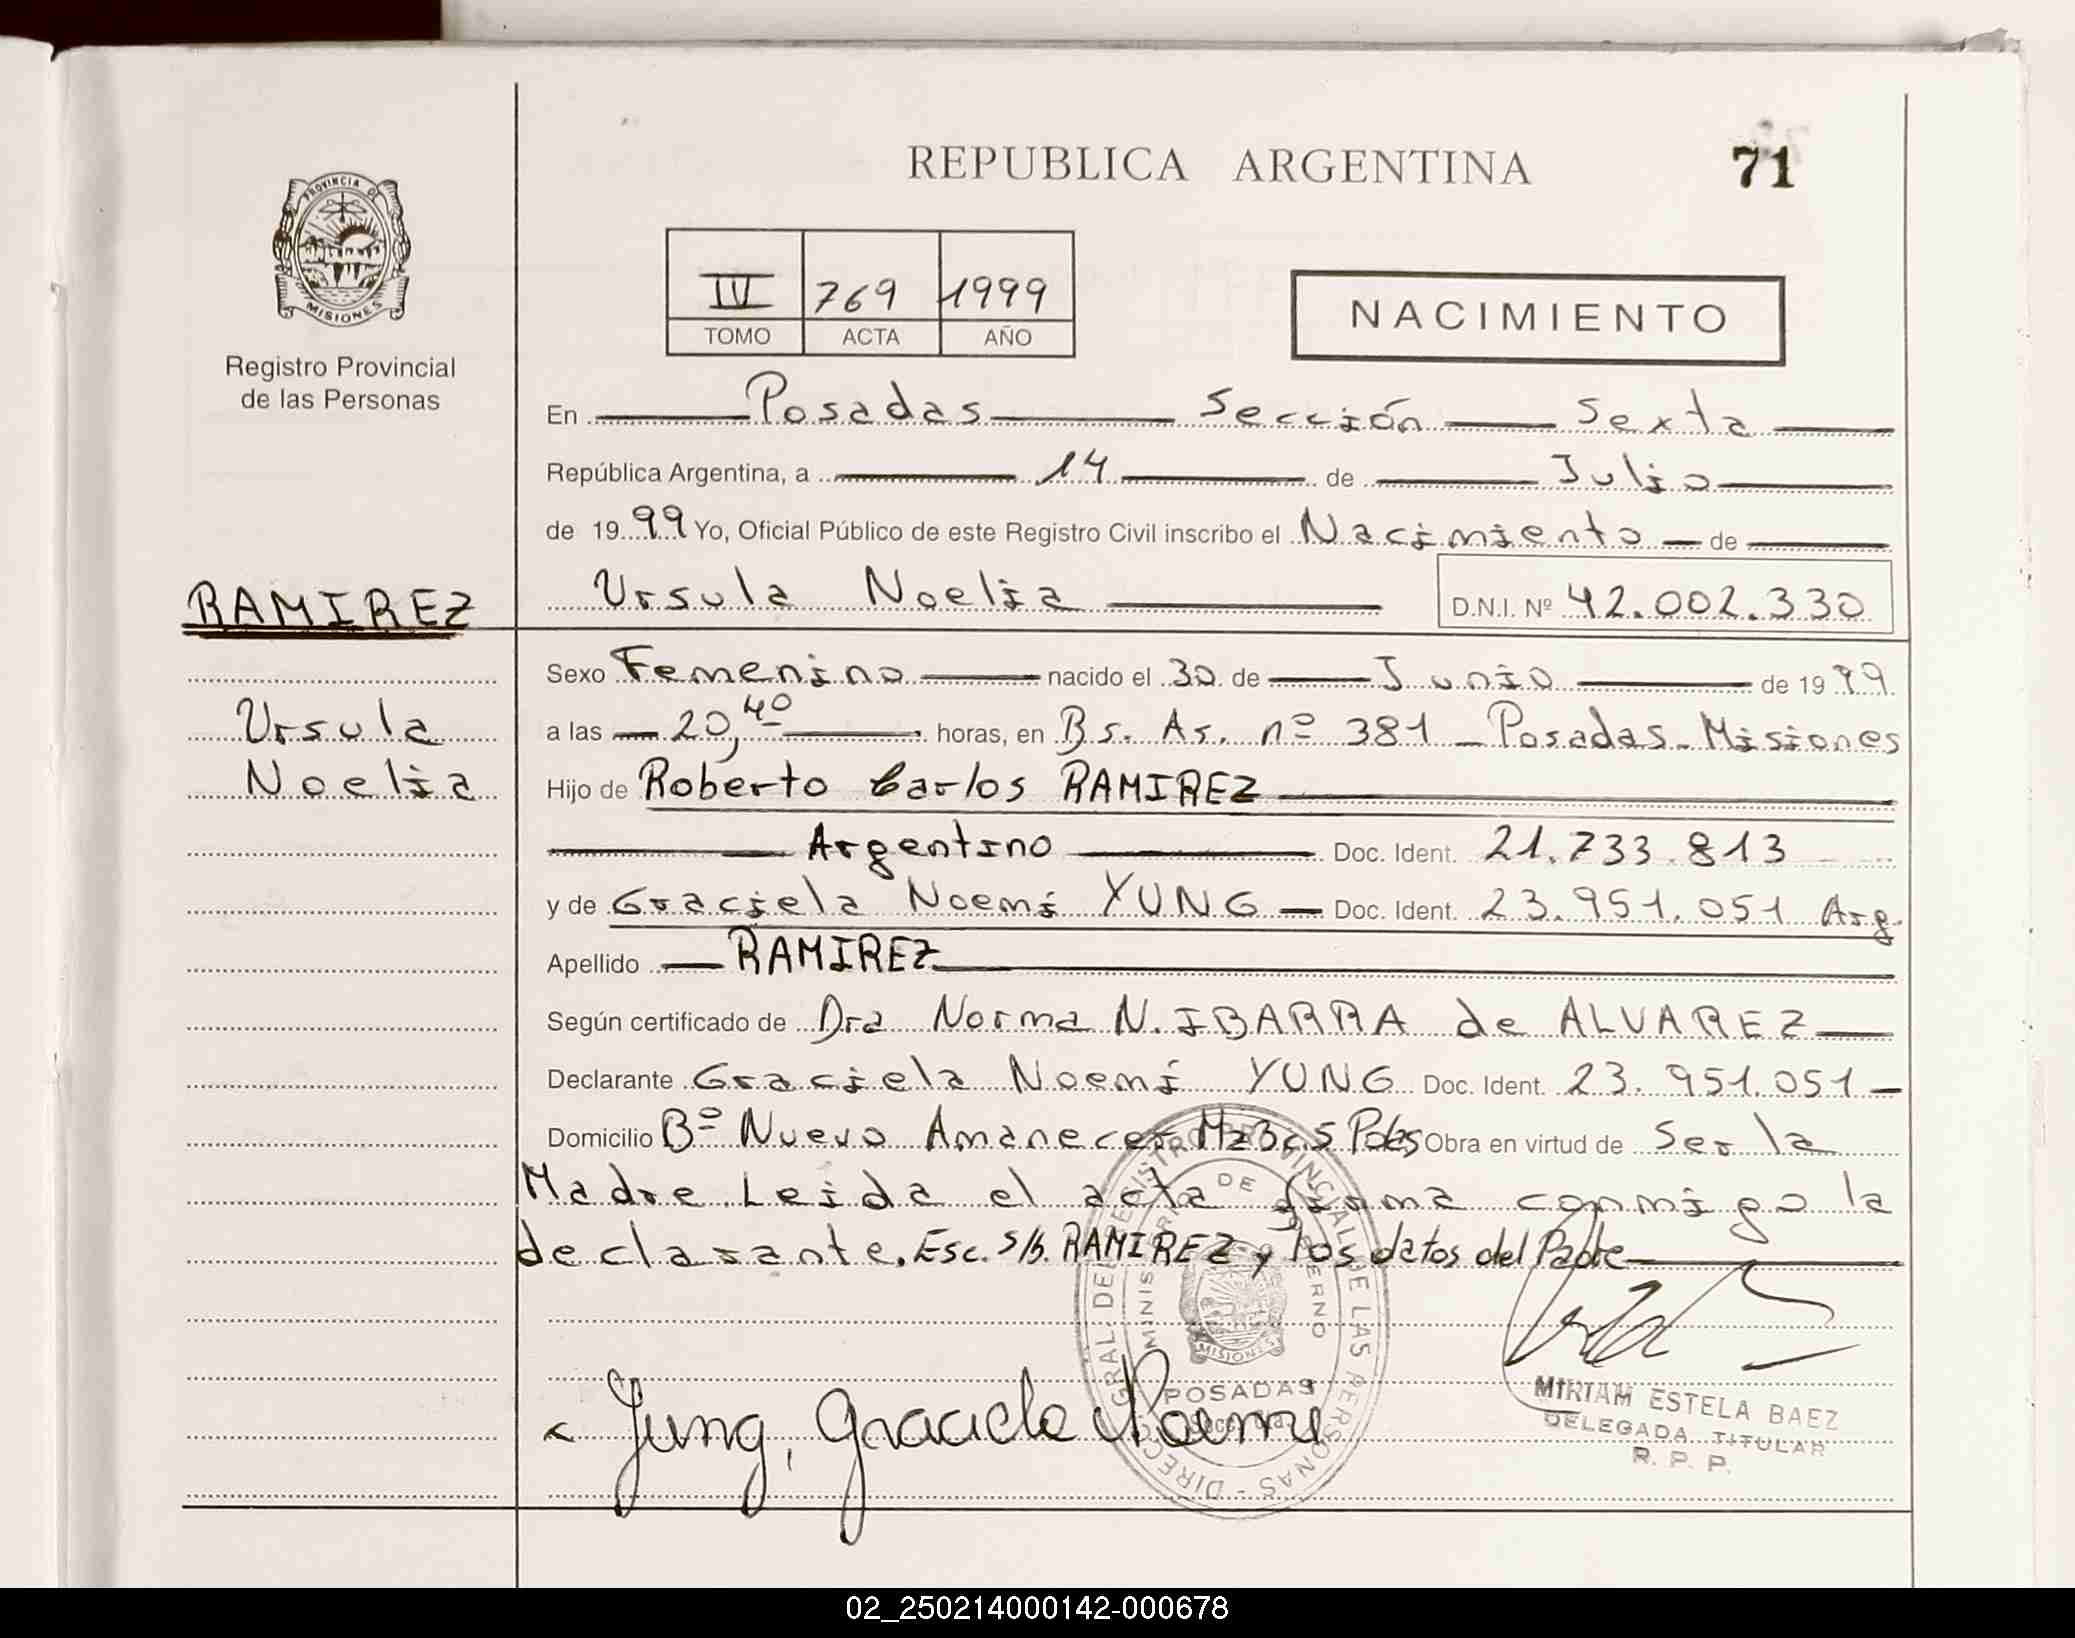 REPUBLICA ARGENTINA
71
PROVINCIA DE
MISIONES
Registro Provincial
de las Personas
IV 769 1999
TOMO ACTA AÑO
NACIMIENTO
En Posadas Sección Sexta
República Argentina, a 14 de Julio
de 1999 Yo, Oficial Público de este Registro Civil inscribo el Nacimiento de
RAMIREZ
Ursula Noelia D.N.I. Nº 42.002.330
Sexo Femenino nacido el 30 de Junio de 1999
Ursula
a las 20,40 horas, en Bs. As. nº 381 - Posadas - Misiones
Noelia
Hijo de Roberto Carlos RAMIREZ
Argentino Doc. Ident. 21.733.813
y de Graciela Noemi YUNG Doc. Ident. 23.951.051 Arg.
Apellido RAMIREZ
Según certificado de Dra Norma N. IBARRA de ALVAREZ
Declarante Graciela Noemi YUNG Doc. Ident. 23.951.051
Domicilio Bº Nuevo Amanecer Mz3 c.5 Pdas Obra en virtud de Ser la
Madre Leida el acta firma conmigo la
declarante. Esc. s/b. RAMIREZ y los datos del Padre
DIRECC GRAL. DEL REGISTRO PROVINCIAL DE LAS PERSONAS
MINISTERIO DE GOBIERNO
MISIONES
POSADAS
Jung, Graciela Noemi
MIRIAM ESTELA BAEZ
DELEGADA TITULAR
R. P. P.
02_250214000142-000678